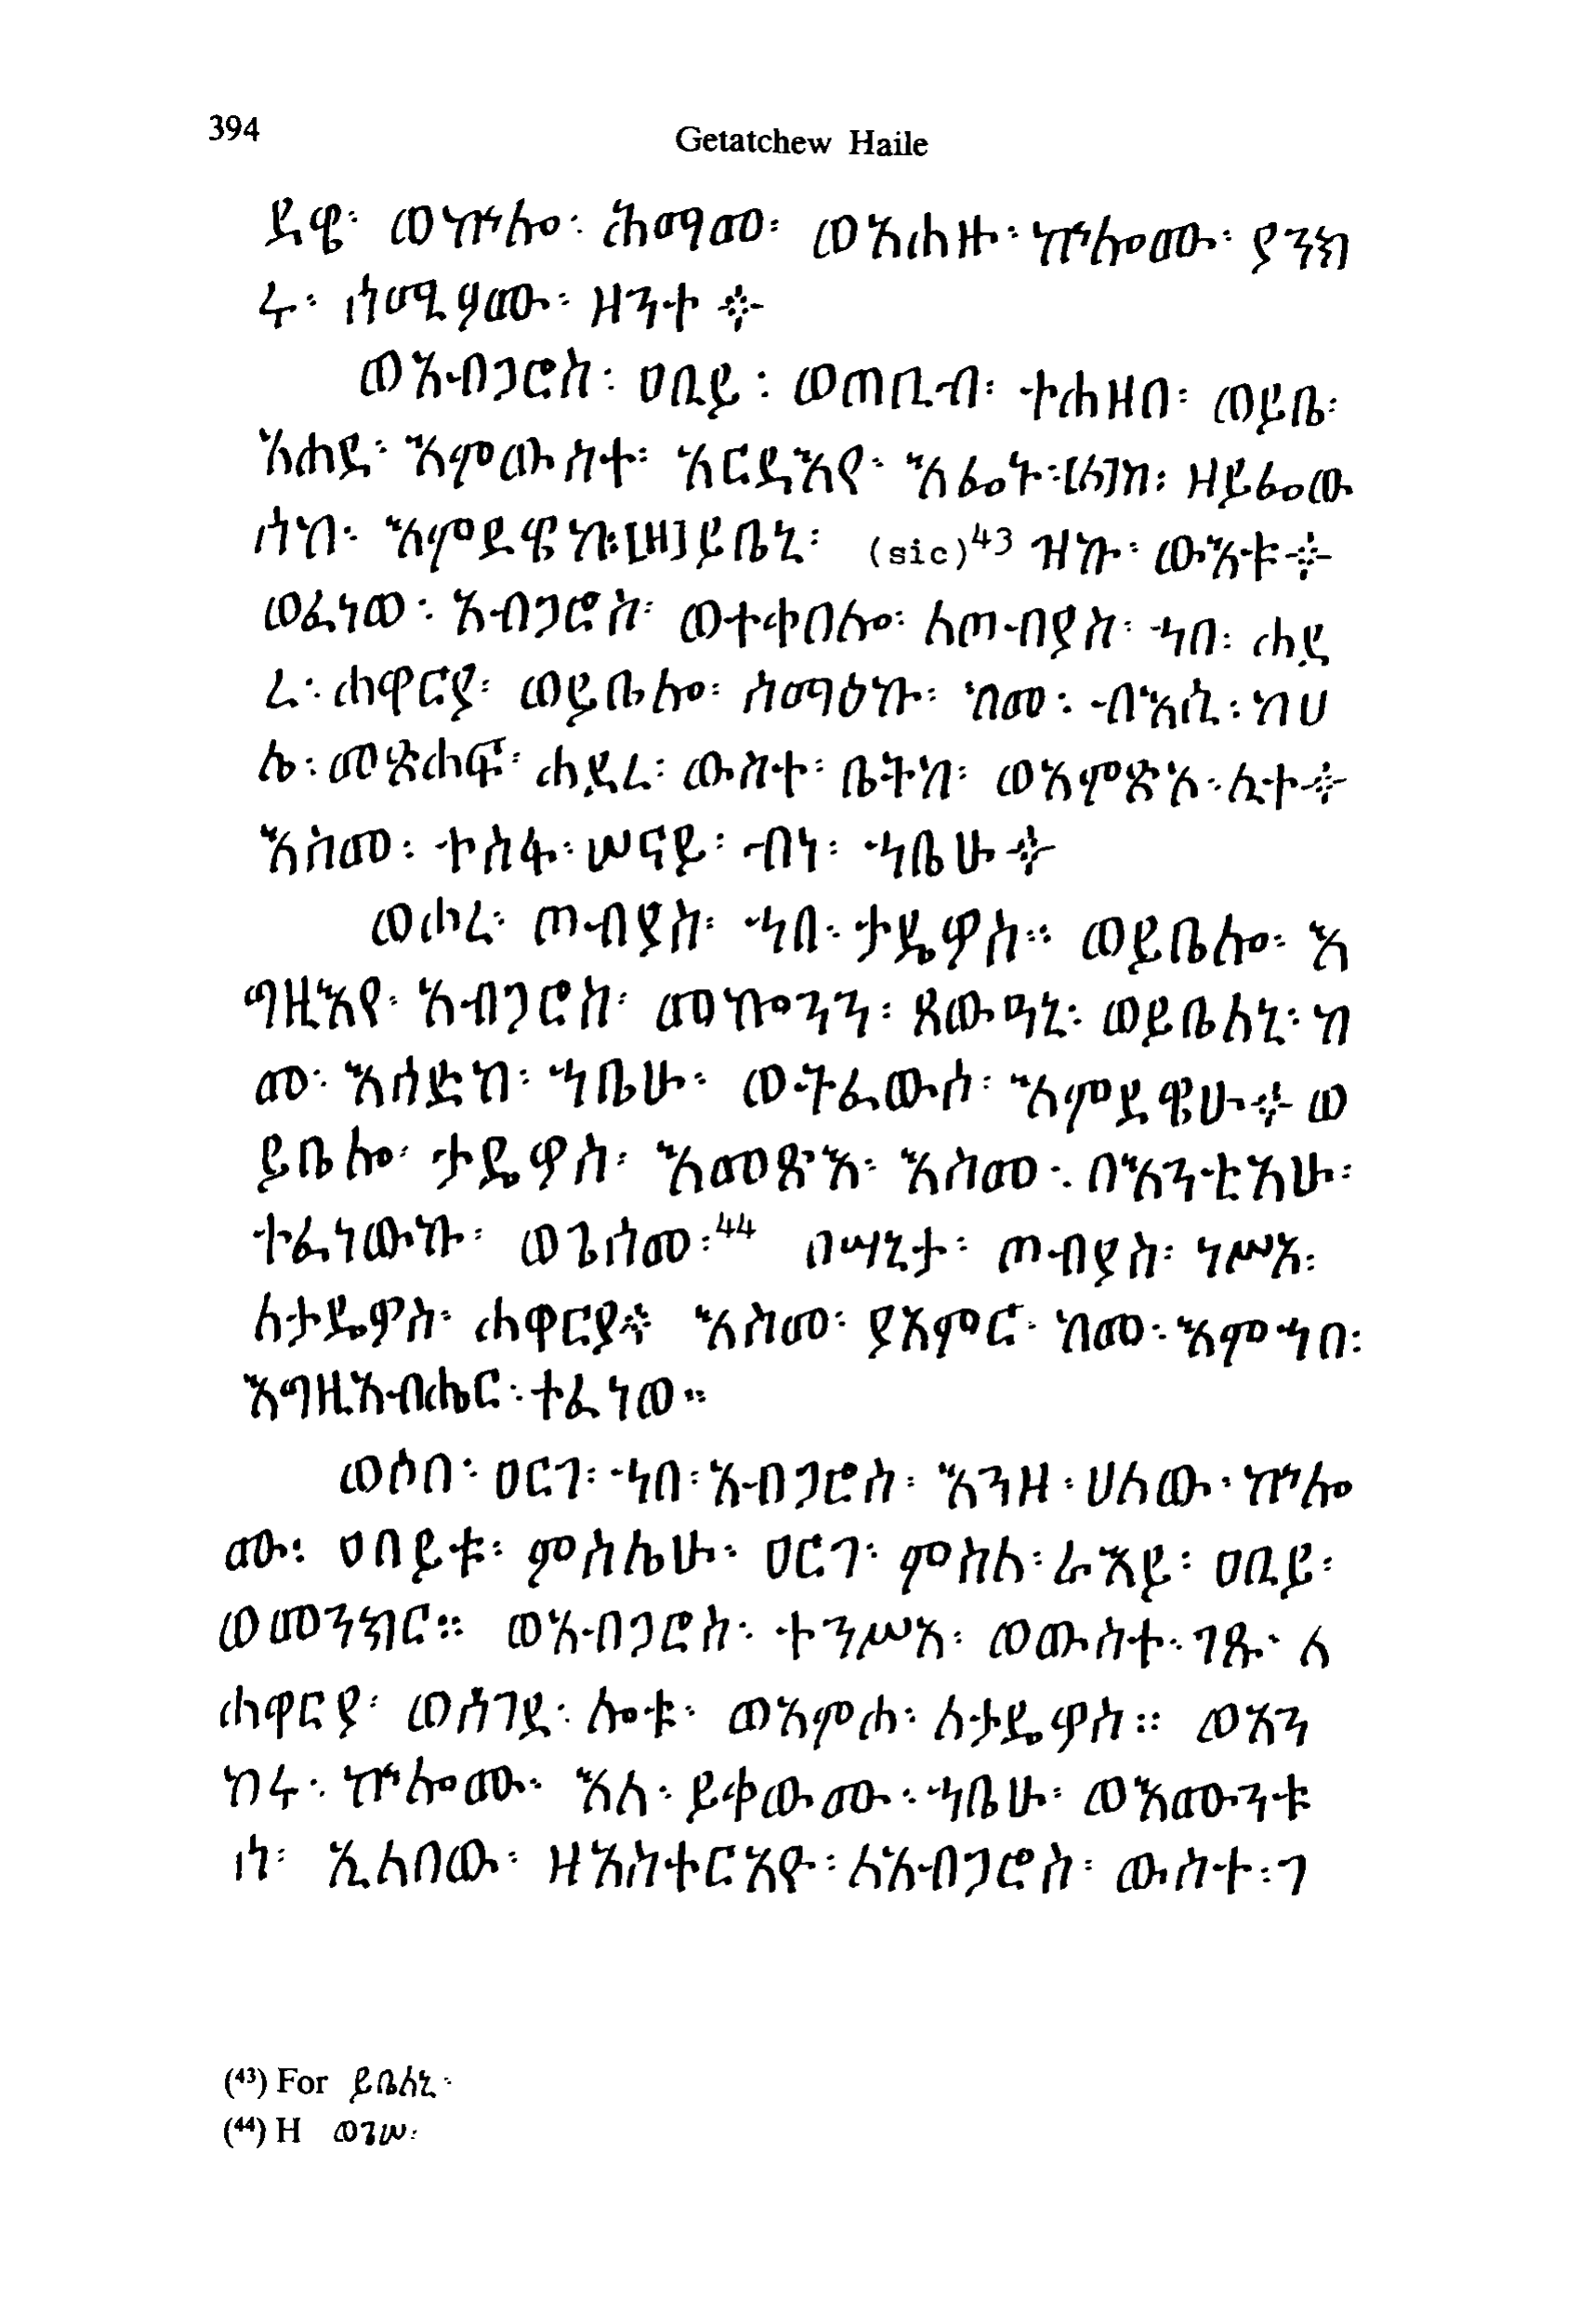 394
Getatchew Haile
ደዌ፡ ወኵሎ፡ ሕማመ፡ ወአሐዙ፡ ኵሎሙ፡ ያንክ
ሩ፡ ሰሚዖሙ፡ ዘንተ ፨
ወአብጋሮስ፡ ዐቢይ፡ ወጠቢብ፡ ተሐዘበ፡ ወይቤ፡
አሐደ፡ እምውስተ፡ አርዳእየ፡ እፌኑ፡[ለ]ከ፡ ዘይፌው
ሰከ፡ እምደዌከ፡[ዘ]ይቤኒ፡ (sic)43 ዝኩ፡ ውእቱ፨
ወፈነወ፡ አብጋሮስ፡ ወተቀበሎ፡ ለጦብያስ፡ ኀበ፡ ሐደ
ረ፡ ሐዋርያ፡ ወይቤሎ፡ ሰማዕኩ፡ ከመ፡ ብእሲ፡ ከሀ
ሌ፡ መጽሐፍ፡ ሐደረ፡ ውስተ፡ ቤትከ፡ ወአምጽኦ፡ ሊተ፨
እስመ፡ ተስፋ፡ ሠናይ፡ ብነ፡ ኀቤሁ፨
ወሖረ፡ ጦብያስ፡ ኀበ፡ ታዴዎስ። ወይቤሎ፡ እ
ግዚእየ፡ አብጋሮስ፡ መኰንን፡ ጸውዓኒ፡ ወይቤለኒ፡ ከ
መ፡ እሰድከ፡ ኀቤሁ፡ ወትፈውሶ፡ እምደዌሁ፨ ወ
ይቤሎ፡ ታዴዎስ፡ እመጽእ፡ እስመ፡ በእንቲአሁ፡
ተፈነውኩ፡ ወጌሰመ፡44 በሣኒታ፡ ጦብያስ፡ ነሥአ፡
ለታዴዎስ፡ ሐዋርያ፨ እስመ፡ ያአምር፡ ከመ፡ እምኀበ፡
እግዚአብሔር፡ ተፈነወ።
ወሶበ፡ ዐርገ፡ ኀበ፡ አብጋሮስ፡ እንዘ፡ ሀለው፡ ኵሎ
ሙ፡ ዐበይቱ፡ ምስሌሁ፡ ዐርገ፡ ምስለ፡ ራእይ፡ ዐቢይ፡
ወመንክር። ወአብጋሮስ፡ ተንሥአ፡ ወውስተ፡ ገጹ፡ ለ
ሐዋርያ፡ ወሰገደ፡ ሎቱ፡ ወአምሐ፡ ለታዴዎስ። ወአን
ከሩ፡ ኵሎሙ፡ እለ፡ ይቀውሙ፡ ኀቤሁ፡ ወእሙንቱ
ሰ፡ ኢለበው፡ ዘአስተርአዮ፡ ለአብጋሮስ፡ ውስተ፡ ገ
(43) For ይቤለኒ፡
(44) H ወጌሠ፡